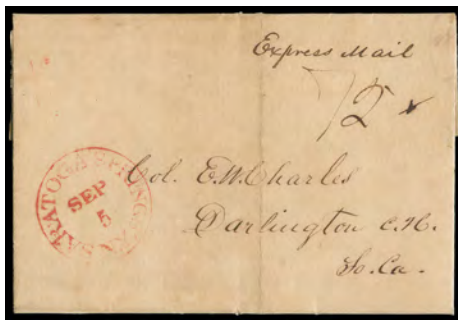 Express Mail
72
SARATOGA SPRINGS N.Y.
SEP
5
Col. E.W. Charles
Darlington C.H.
So. Ca.